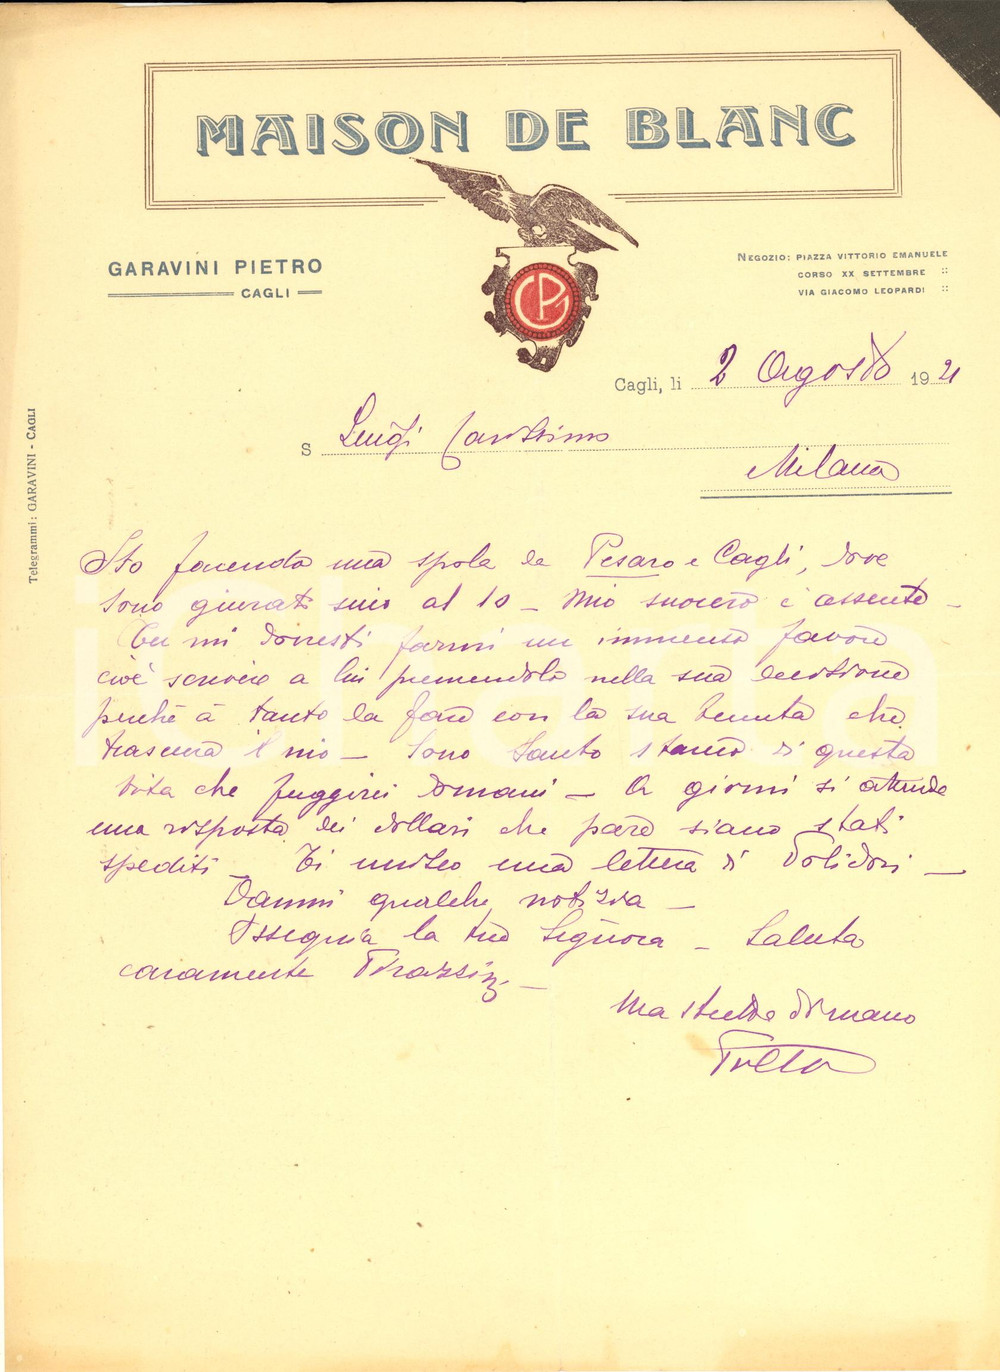 MAISON DE BLANC
GARAVINI PIETRO
CAGLI
GPC
NEGOZIO: PIAZZA VITTORIO EMANUELE
CORSO XX SETTEMBRE ::
VIA GIACOMO LEOPARDI ::
Telegrammi: GARAVINI - CAGLI
Cagli, li 2 Agosto 1921
S Luigi Carissimo
Milano
Sto facendo una spola da Pesaro e Cagli, dove
sono giurati sino al 10 - Mio suocero è assente -
Tu mi dovresti farmi un immenso favore
cioè scrivere a lui premendolo nella sua decisione
perchè à tanto da fare con la sua tenuta che
trascura il mio - Sono tanto stanco di questa
vita che fuggirei domani - A giorni si attende
una risposta dei dollari che pare siano stati
spediti - Ti unisco una lettera di Polidori -
Dammi qualche notizia -
Ossequia la tua Signora - Saluta
caramente -
Ma stretta di mano